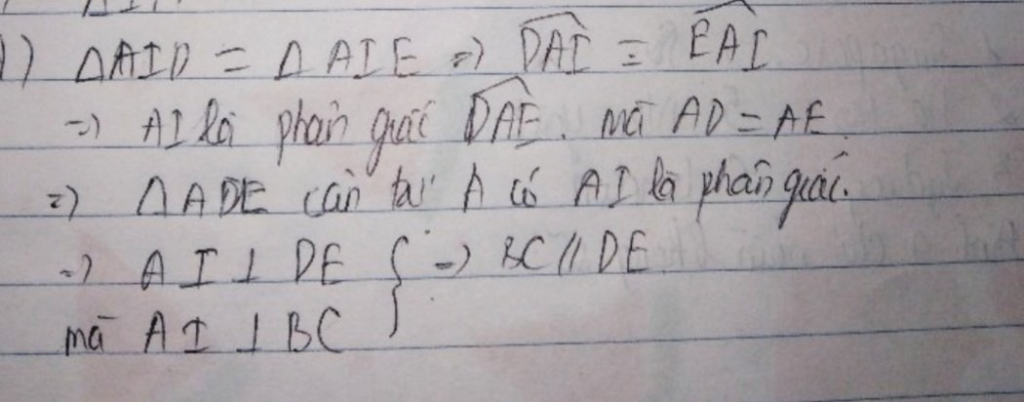 ) ΔAID = ΔAIE => \widehat{DAI} = \widehat{EAI}
=> AI là phân giác \widehat{DAE}. mà AD = AE.
=> ΔADE cân tại A có AI là phân giác.
=> AI ⊥ DE } => BC // DE
mà AI ⊥ BC